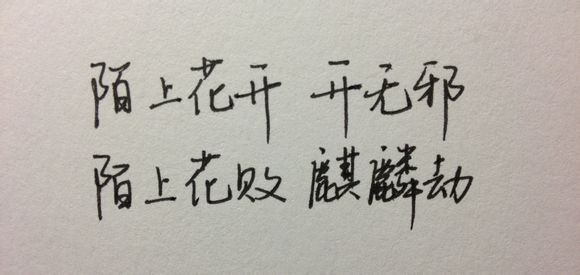 陌上花开 开无邪
陌上花败 麒麟劫